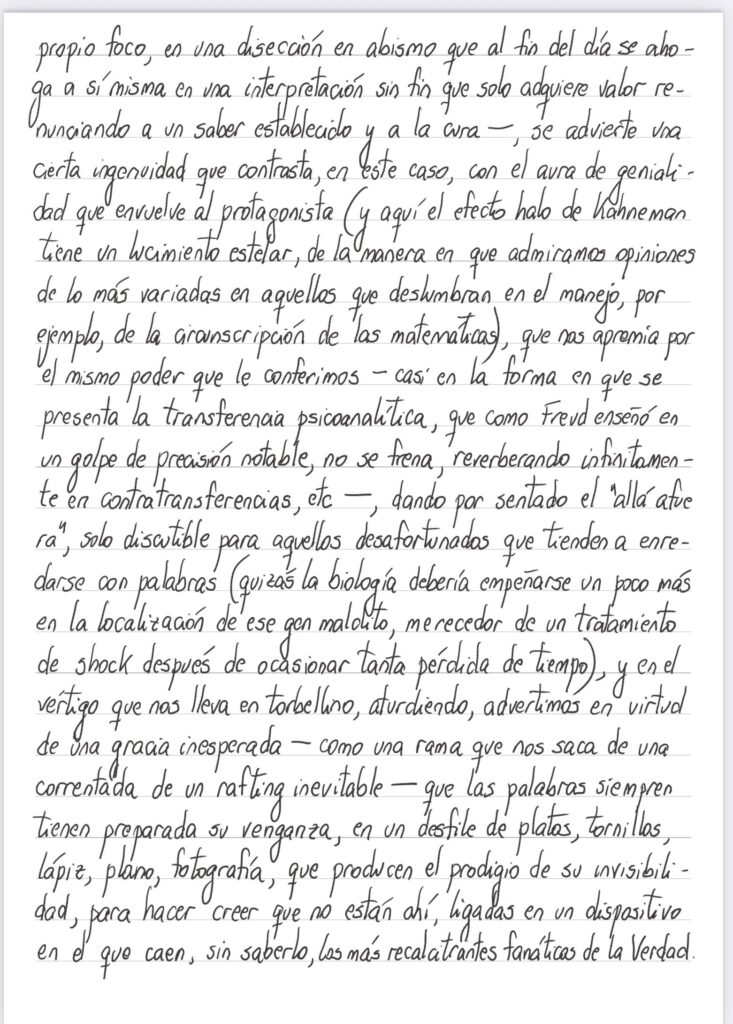 propio foco, en una disección en abismo que al fin del día se aho-
ga a sí misma en una interpretación sin fin que solo adquiere valor re-
nunciando a un saber establecido y a la cura —, se advierte una
cierta ingenuidad que contrasta, en este caso, con el aura de geniali-
dad que envuelve al protagonista (y aquí el efecto halo de Kahneman
tiene un lucimiento estelar, de la manera en que admiramos opiniones
de lo más variadas en aquellos que deslumbran en el manejo, por
ejemplo, de la circunscripción de las matemáticas), que nos apremia por
el mismo poder que le conferimos – casi en la forma en que se
presenta la transferencia psicoanalítica, que como Freud enseñó en
un golpe de precisión notable, no se frena, reverberando infinitamen-
te en contratransferencias, etc —, dando por sentado el "allá afue
ra", solo discutible para aquellos desafortunados que tienden a enre-
darse con palabras (quizás la biología debería empeñarse un poco más
en la localización de ese gen maldito, merecedor de un tratamiento
de shock después de ocasionar tanta pérdida de tiempo), y en el
vértigo que nos lleva en torbellino, aturdiendo, advertimos en virtud
de una gracia inesperada – como una rama que nos saca de una
correntada de un rafting inevitable — que las palabras siempren
tienen preparada su venganza, en un desfile de platos, tornillos,
lápiz, plano, fotografía, que producen el prodigio de su invisibili-
dad, para hacer creer que no están ahí, ligadas en un dispositivo
en el que caen, sin saberlo, los más recalcitrantes fanáticos de la Verdad.